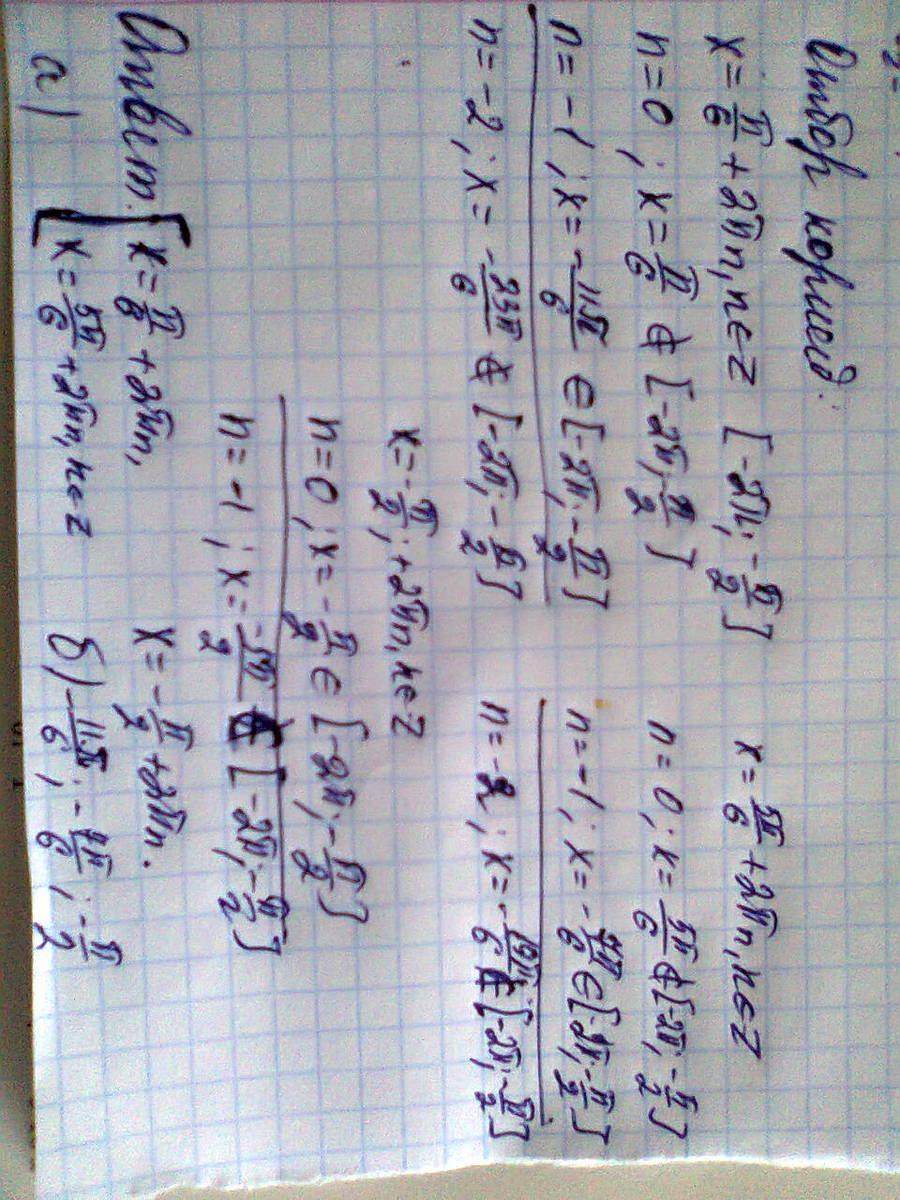 Отбор корней:
x = π/6 + 2πn, n∈Z [-2π; -π/2]
n = 0 ; x = π/6 ∉ [-2π; -π/2]
n = -1 ; x = -11π/6 ∈ [-2π; -π/2]
n = -2 ; x = -23π/6 ∉ [-2π; -π/2]
x = 5π/6 + 2πn, n∈Z
n = 0 ; x = 5π/6 ∉ [-2π; -π/2]
n = -1 ; x = -7π/6 ∈ [-2π; -π/2]
n = -2 ; x = -19π/6 ∉ [-2π; -π/2]
x = -π/2 ; + 2πn, n∈Z
n = 0 ; x = -π/2 ∈ [-2π; -π/2]
n = -1 ; x = -5π/2 ∉ [-2π; -π/2]
Ответ. [ x = π/6 + 2πn, x = -π/2 + 2πn.
а) [ x = 5π/6 + 2πn, n∈Z б) -11π/6 ; -7π/6 ; -π/2